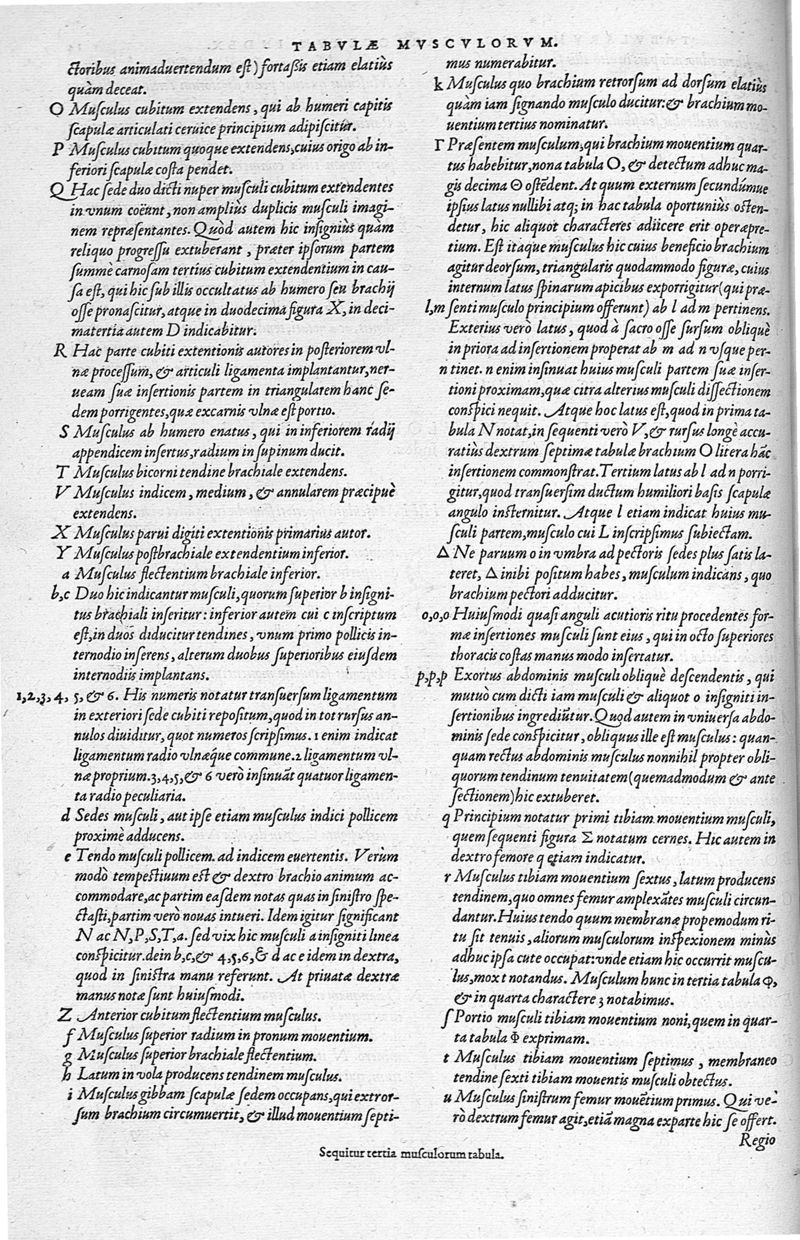 TABVLÆ MVSCVLORVM.
ctoribus animaduertendum est) fortaßis etiam elatiùs
quàm deceat.
O Musculus cubitum extendens, qui ab humeri capitis
scapulæ articulati ceruice principium adipiscitur.
P Musculus cubitum quoque extendens, cuius origo ab in-
feriori scapulæ costa pendet.
Q Hac sede duo dicti nuper musculi cubitum extendentes
in vnum coëunt, non ampliùs duplicis musculi imagi-
nem repræsentantes. Quòd autem hic insigniùs quàm
reliquo progressu extuberant, præter ipsorum partem
summè carnosam tertius cubitum extendentium in cau-
sa est, qui hic sub illis occultatus ab humero seu brachij
osse pronascitur, atque in duodecima figura X, in deci-
matertia autem D indicabitur.
R Hac parte cubiti extentionis autores in posteriorem vl-
næ processum, & articuli ligamenta implantantur, ner-
ueam suæ insertionis partem in triangularem hanc se-
dem porrigentes, quæ excarnis vlnæ est portio.
S Musculus ab humero enatus, qui in inferiorem radij
appendicem insertus, radium in supinum ducit.
T Musculus bicorni tendine brachiale extendens.
V Musculus indicem, medium, & annularem præcipuè
extendens.
X Musculus parui digiti extentionis primarius autor.
Y Musculus postbrachiale extendentium inferior.
a Musculus flectentium brachiale inferior.
b,c Duo hic indicantur musculi, quorum superior b insigni-
tus brachiali inseritur: inferior autem cui c inscriptum
est, in duos diducitur tendines, vnum primo pollicis in-
ternodio inserens, alterum duobus superioribus eiusdem
internodiis implantans.
1,2,3,4, 5, & 6. His numeris notatur transuersum ligamentum
in exteriori sede cubiti repositum, quod in tot rursus an-
nulos diuiditur, quot numeros scripsimus. 1 enim indicat
ligamentum radio vlnæque commune. 2 ligamentum vl-
næ proprium. 3,4,5, & 6 verò insinuāt quatuor ligamen-
ta radio peculiaria.
d Sedes musculi, aut ipse etiam musculus indici pollicem
proximè adducens.
e Tendo musculi pollicem. ad indicem euertentis. Verùm
modò tempestiuum est & dextro brachio animum ac-
commodare, ac partim easdem notas quas in sinistro spe-
ctasti, partim verò nouas intueri. Idem igitur significant
N ac N, P, S, T, a. sed vix hic musculi a insigniti linea
conspicitur. dein b, c, & 4,5,6, & d ac e idem in dextra,
quod in sinistra manu referunt. At priuatæ dextræ
manus notæ sunt huiusmodi.
Z Anterior cubitum flectentium musculus.
f Musculus superior radium in pronum mouentium.
g Musculus superior brachiale flectentium.
h Latum in vola producens tendinem musculus.
i Musculus gibbam scapulæ sedem occupans, qui extror-
sum brachium circumuertit, & illud mouentium septi-
mus numerabitur.
k Musculus quo brachium retrorsum ad dorsum elatiùs
quàm iam signando musculo ducitur: & brachium mo-
uentium tertius nominatur.
Γ Præsentem musculum, qui brachium mouentium quar-
tus habebitur, nona tabula O, & detectum adhuc ma-
gis decima Θ ostēdent. At quum externum secundúmue
ipsius latus nullibi atq; in hac tabula oportuniùs osten-
detur, hic aliquot characteres adiicere erit operæpre-
tium. Est itaque musculus hic cuius beneficio brachium
agitur deorsum, triangularis quodammodo figuræ, cuius
internum latus spinarum apicibus exporrigitur (qui præ-
l,m senti musculo principium offerunt) ab l ad m pertinens.
Exterius verò latus, quod à sacro osse sursum obliquè
in priora ad insertionem properat ab m ad n vsque per-
n tinet. n enim insinuat huius musculi partem suæ inser-
tioni proximam, quæ citra alterius musculi dissectionem
conspici nequit. Atque hoc latus est, quod in prima ta-
bula N notat, in sequenti verò V, & rursus longè accu-
ratiùs dextrum septimæ tabulæ brachium O litera hāc
insertionem commonstrat. Tertium latus ab l ad n porri-
gitur, quod transuersim ductum humiliori basis scapulæ
angulo insternitur. Atque l etiam indicat huius mu-
sculi partem, musculo cui L inscripsimus subiectam.
Δ Ne paruum o in vmbra ad pectoris sedes plus satis la-
teret, Δ inibi positum habes, musculum indicans, quo
brachium pectori adducitur.
o,o,o Huiusmodi quasi anguli acutioris ritu procedentes for-
mæ insertiones musculi sunt eius, qui in octo superiores
thoracis costas manus modo insertatur.
p,p,p Exortus abdominis musculi obliquè descendentis, qui
mutuò cum dicti iam musculi & aliquot o insigniti in-
sertionibus ingrediūtur. Quod autem in vniuersa abdo-
minis sede conspicitur, obliquus ille est musculus: quan-
quam rectus abdominis musculus nonnihil propter obli-
quorum tendinum tenuitatem (quemadmodum & ante
sectionem) hic extuberet.
q Principium notatur primi tibiam mouentium musculi,
quem sequenti figura Σ notatum cernes. Hic autem in
dextro femore q etiam indicatur.
r Musculus tibiam mouentium sextus, latum producens
tendinem, quo omnes femur amplexātes musculi circun-
dantur. Huius tendo quum membranæ propemodum ri-
tu sit tenuis, aliorum musculorum inspexionem minùs
adhuc ipsa cute occupat: vnde etiam hic occurrit muscu-
lus, mox t notandus. Musculum hunc in tertia tabula φ,
& in quarta charactere 3 notabimus.
ſ Portio musculi tibiam mouentium noni, quem in quar-
ta tabula Φ exprimam.
t Musculus tibiam mouentium septimus, membraneo
tendine sexti tibiam mouentis musculi obtectus.
u Musculus sinistrum femur mouētium primus. Qui ve-
rò dextrum femur agit, etiā magna ex parte hic se offert.
Regio
Sequitur tertia musculorum tabula.